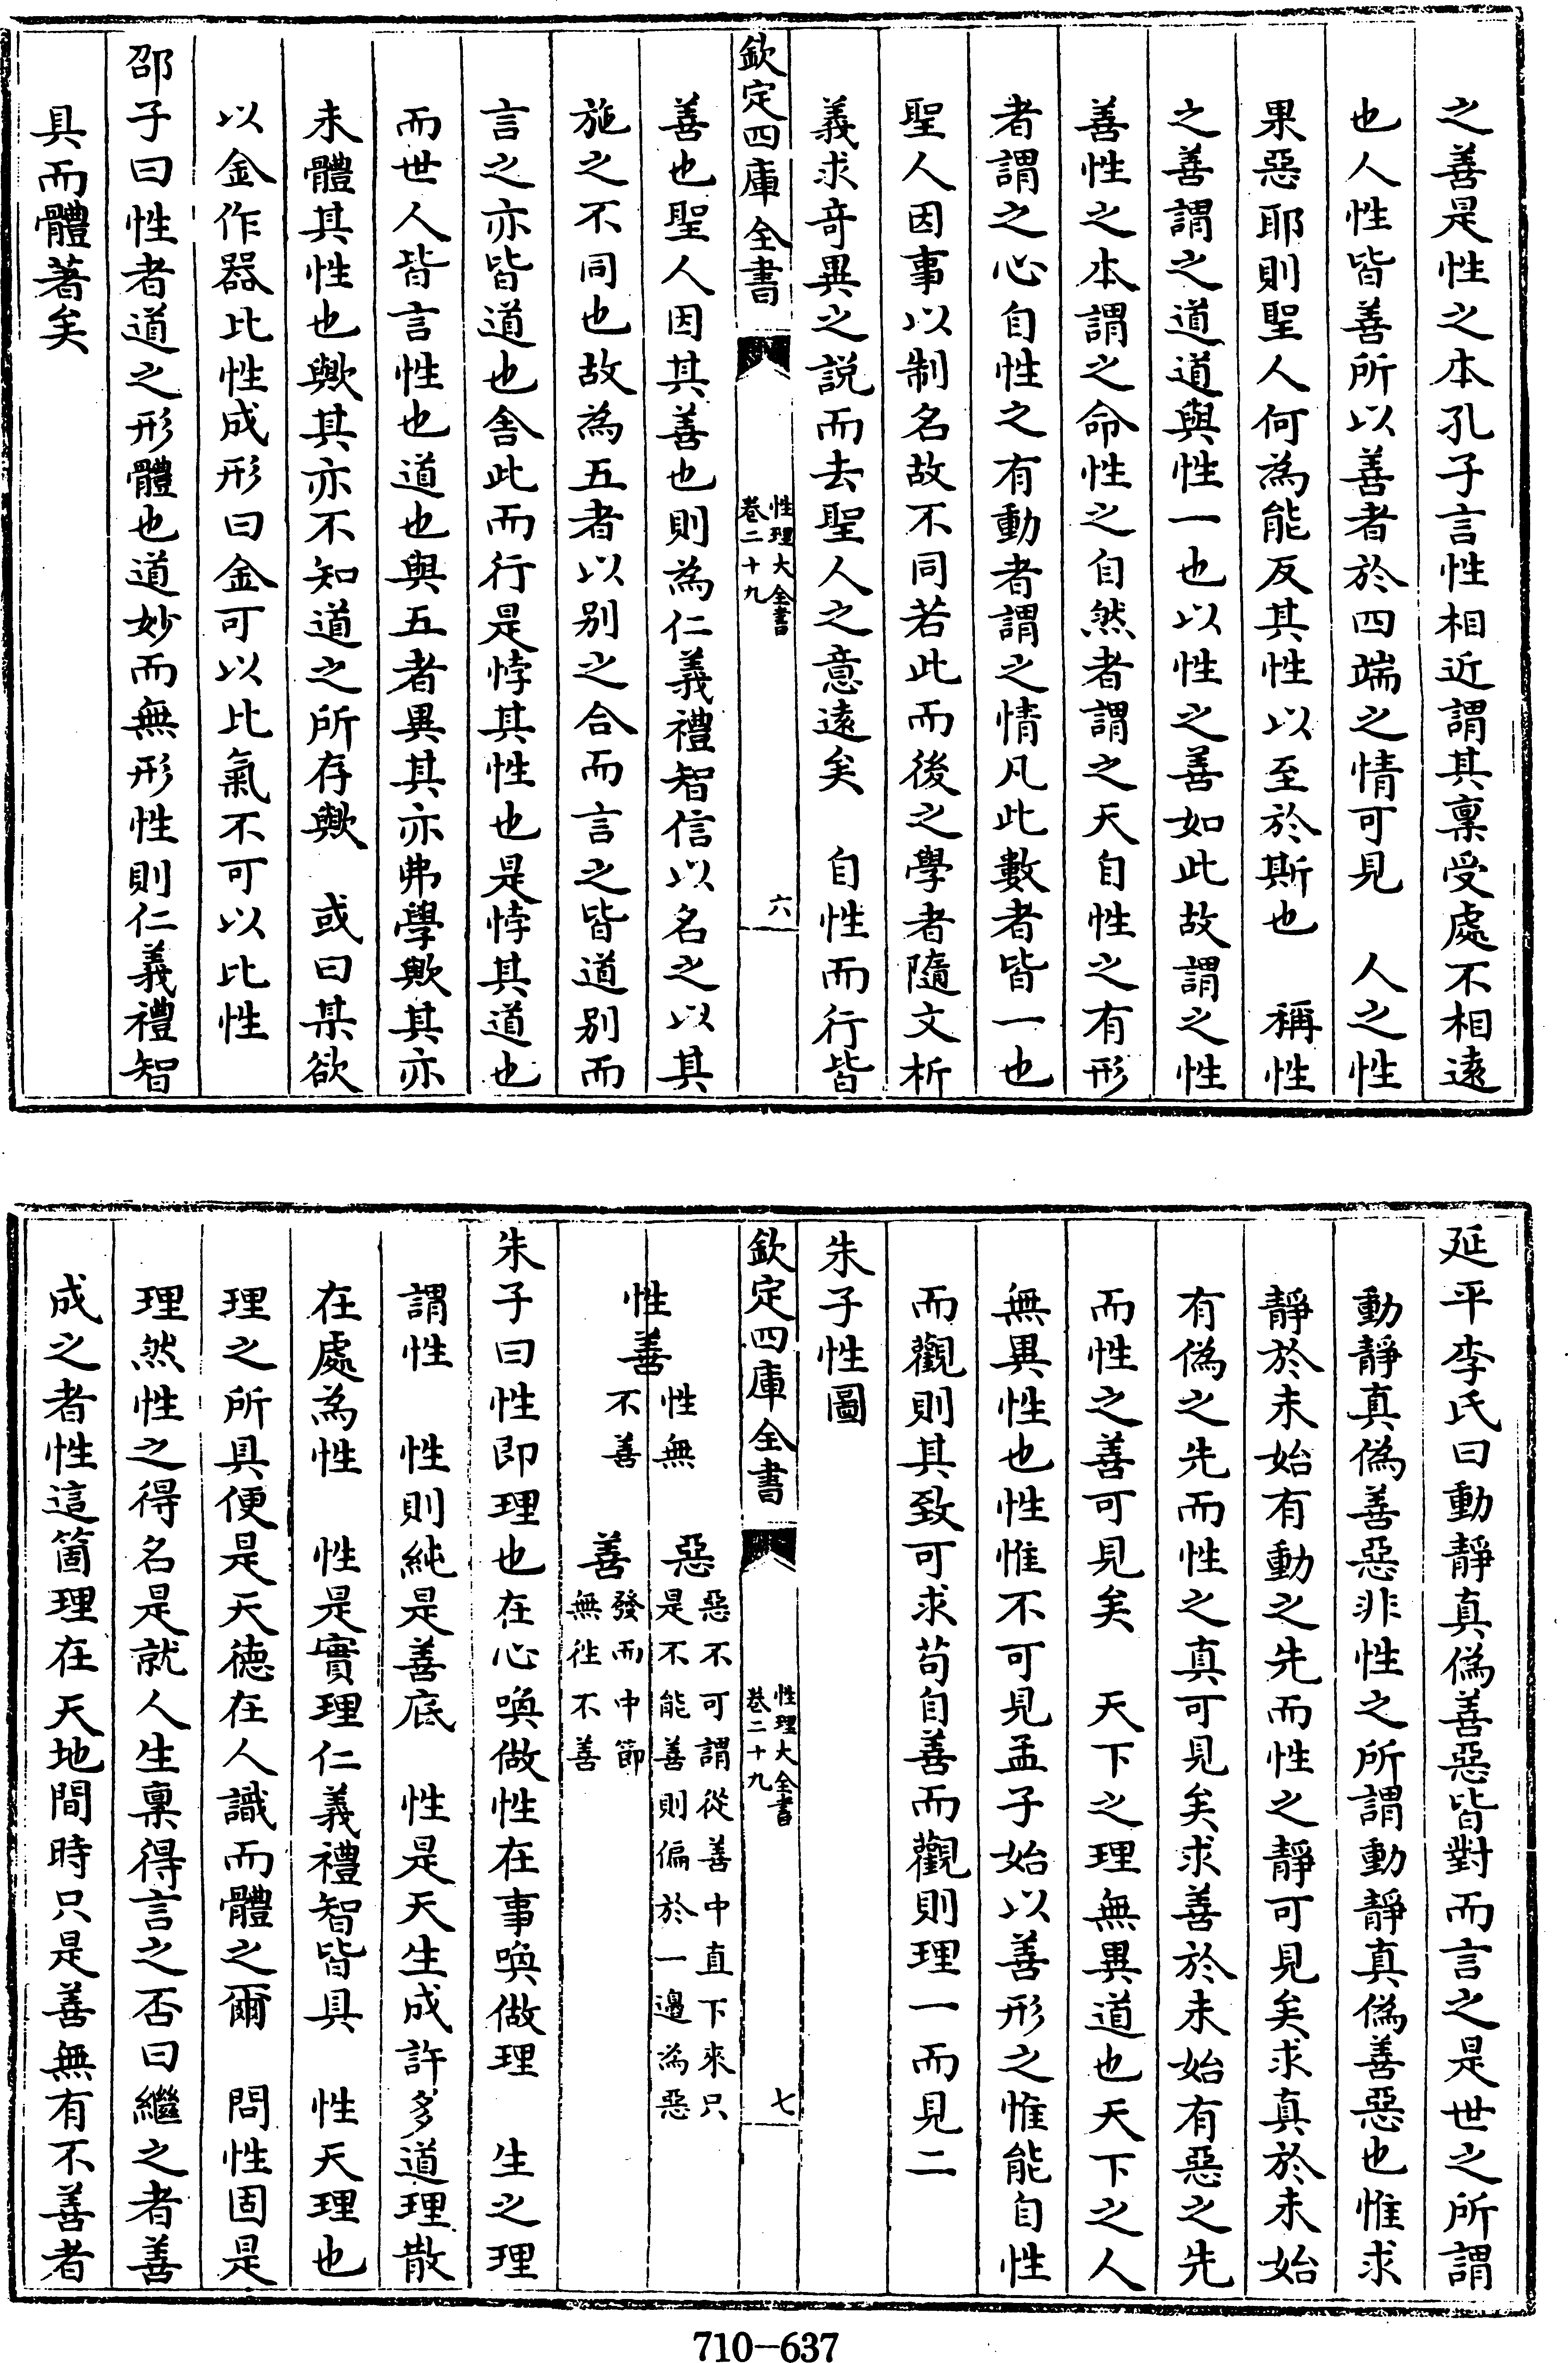 之善是性之本孔子言性相近謂其稟受處不相遠
也人性皆善所以善者於四端之情可見　人之性
果惡耶則聖人何為能反其性以至於斯也　稱性
之善謂之道道與性一也以性之善如此故謂之性
善性之本謂之命性之自然者謂之天自性之有形
者謂之心自性之有動者謂之情凡此數者皆一也
聖人因事以制名故不同若此而後之學者隨文析
義求奇異之説而去聖人之意遠矣　自性而行皆
欽定四庫全書
性理大全書
卷二十九
六
善也聖人因其善也則為仁義禮智信以名之以其
施之不同也故為五者以别之合而言之皆道别而
言之亦皆道也舍此而行是悖其性也是悖其道也
而世人皆言性也道也與五者異其亦弗學歟其亦
未體其性也歟其亦不知道之所存歟　或曰某欲
以金作器比性成形曰金可以比氣不可以比性
邵子曰性者道之形體也道妙而無形性則仁義禮智
具而體著矣
延平李氏曰動靜真偽善惡皆對而言之是世之所謂
動靜真偽善惡非性之所謂動靜真偽善惡也惟求
靜於未始有動之先而性之靜可見矣求真於未始
有偽之先而性之真可見矣求善於未始有惡之先
而性之善可見矣　天下之理無異道也天下之人
無異性也性惟不可見孟子始以善形之惟能自性
而觀則其致可求苟自善而觀則理一而見二
朱子性圖
欽定四庫全書
性理大全書
卷二十九
七
性善
性無
不善
惡
惡不可謂從善中直下來只
是不能善則偏於一邊為惡
善
發而中節
無往不善
朱子曰性即理也在心喚做性在事喚做理　生之理
謂性　性則純是善底　性是天生成許多道理散
在處為性　性是實理仁義禮智皆具　性天理也
理之所具便是天徳在人識而體之爾　問性固是
理然性之得名是就人生稟得言之否曰繼之者善
成之者性這箇理在天地間時只是善無有不善者
710-637